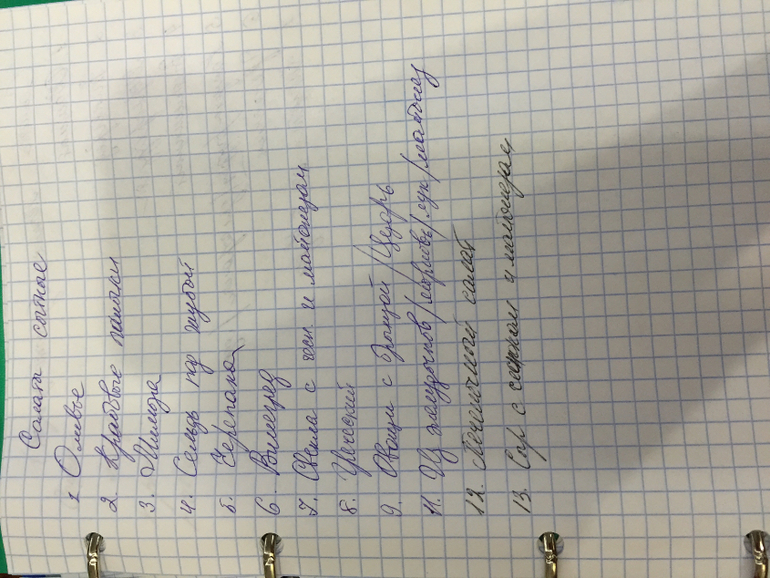 Салаты сытные
1. Оливье
2. Крабовые палочки
3. Мимоза
4. Сельдь под шубой
5. Черепаха
6. Винегрет
7. Свекла с чесн. и майонезом
8. Чешский
9. Овощи с брынзой / Цезарь
11. Из желудочков / морковь / лук / майонез
12. Печеночный салат
13. Сыр с и майонезом